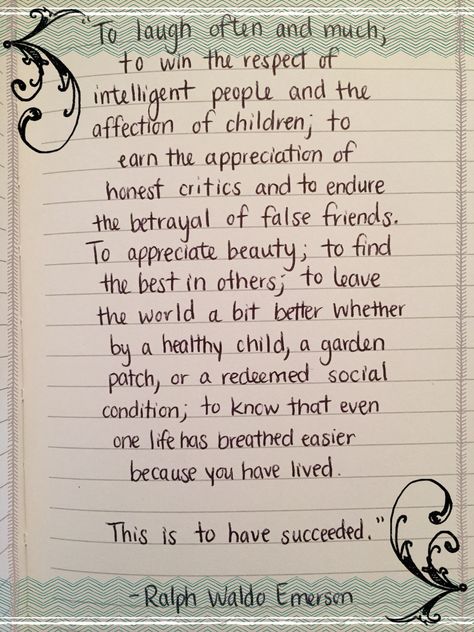 "To laugh often and much;
to win the respect of
intelligent people and the
affection of children; to
earn the appreciation of
honest critics and to endure
the betrayal of false friends.
To appreciate beauty; to find
the best in others; to leave
the world a bit better whether
by a healthy child, a garden
patch, or a redeemed social
condition; to know that even
one life has breathed easier
because you have lived.
This is to have succeeded."
-Ralph Waldo Emerson